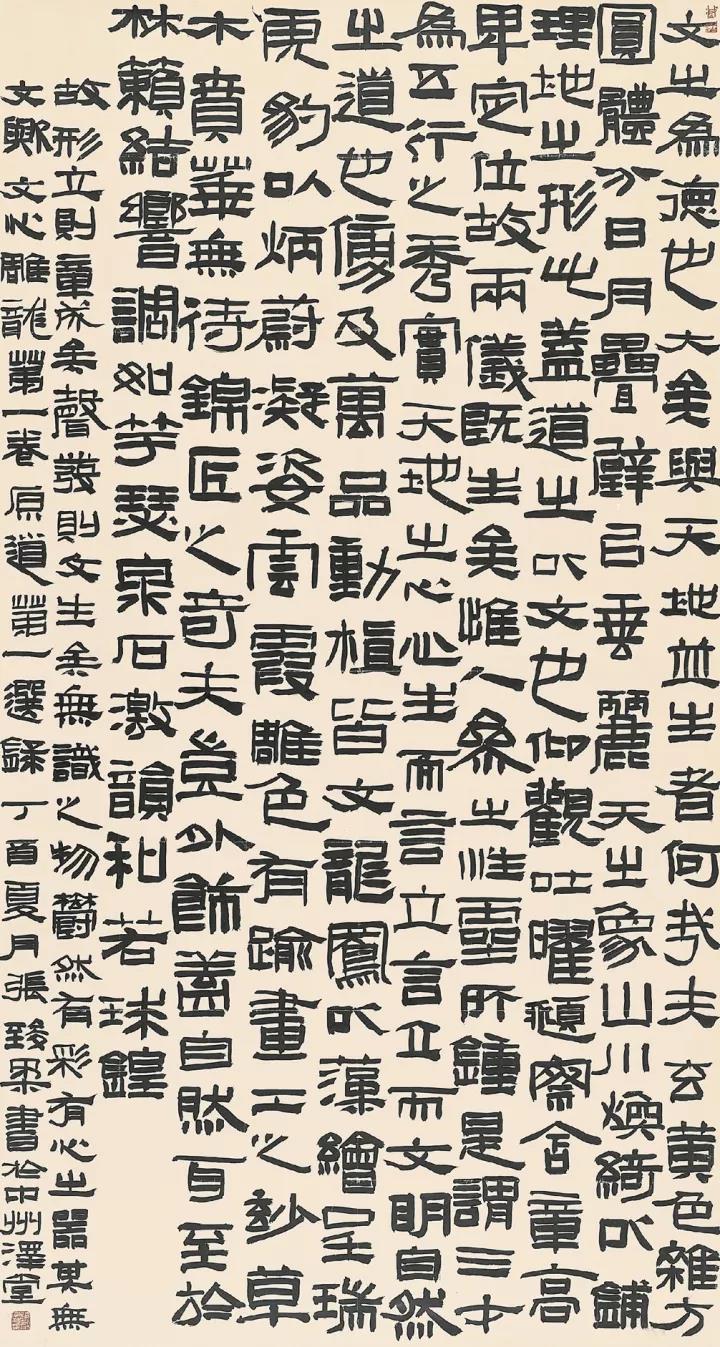 文之為德也大矣與天地並生者何哉夫玄黃色雜方
圓體分日月疊璧以垂麗天之象山川煥綺以鋪
理地之形此蓋道之以文也仰觀吐曜頫察含章高
卑定位故兩儀既生矣唯人參之性靈所鍾是謂三才
為五行之秀實天地之心心生而言立言立而文明自然
之道也傍及萬品動植皆文龍鳳以藻繪呈瑞
虎豹以炳蔚凝姿雲霞雕色有踰畫工之妙草
木賁華無待錦匠之奇夫豈外飾蓋自然耳至於
林籟結響調如竽瑟泉石激韻和若球鍠
故形立則章成矣聲發則文生矣無識之物鬱然有彩有心之器其無
文歟文心雕龍第一卷原道第一選錄丁酉夏月張書於中州澤堂